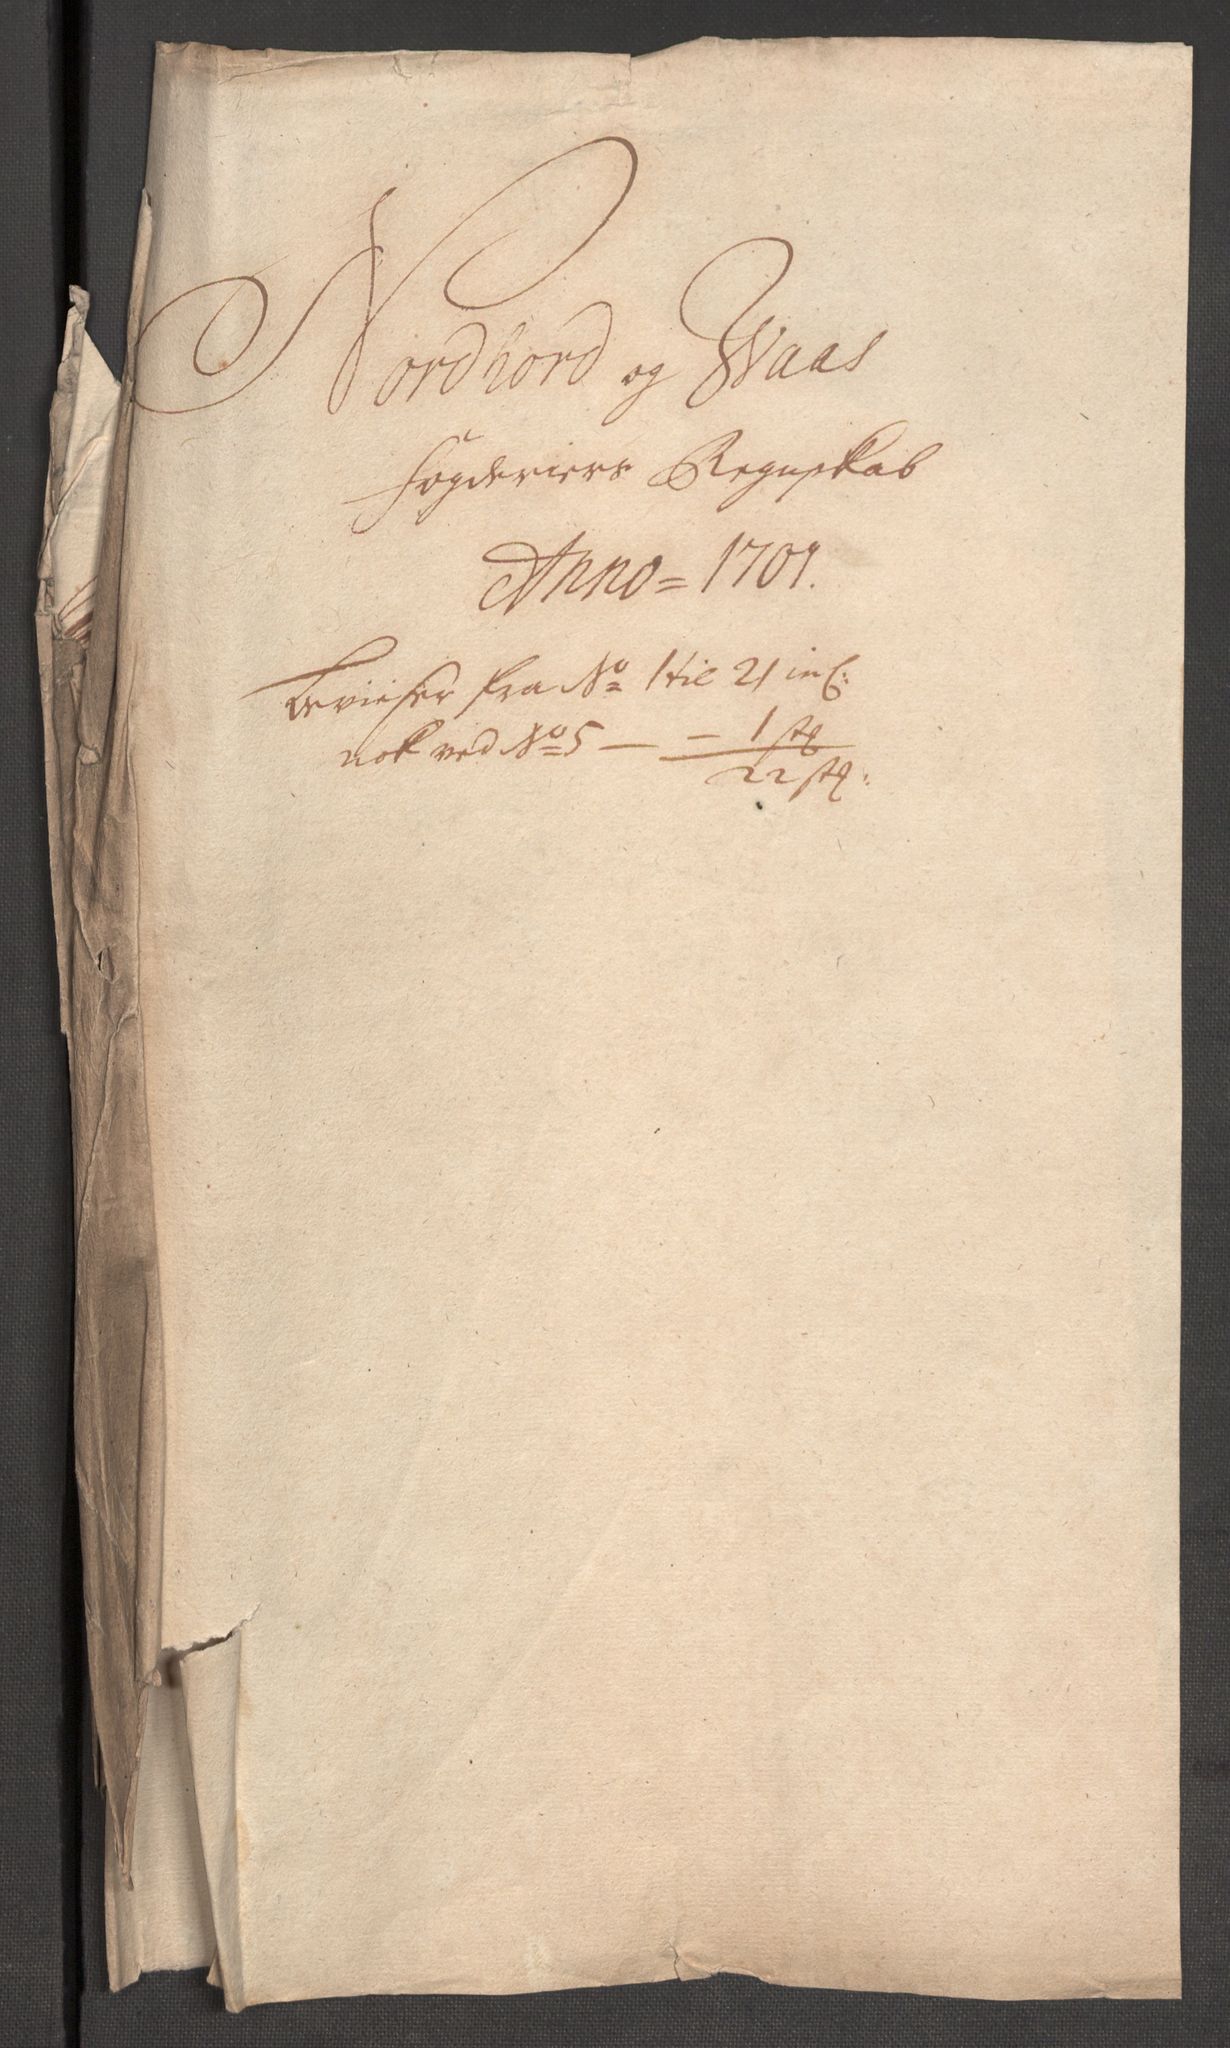 Nordhord og Waas
fogderiers Regnskab
Anno = 1701.
bevieser fra No 1 til 21 incl:
nok ved No 5 — – 1 stk
22 stk: